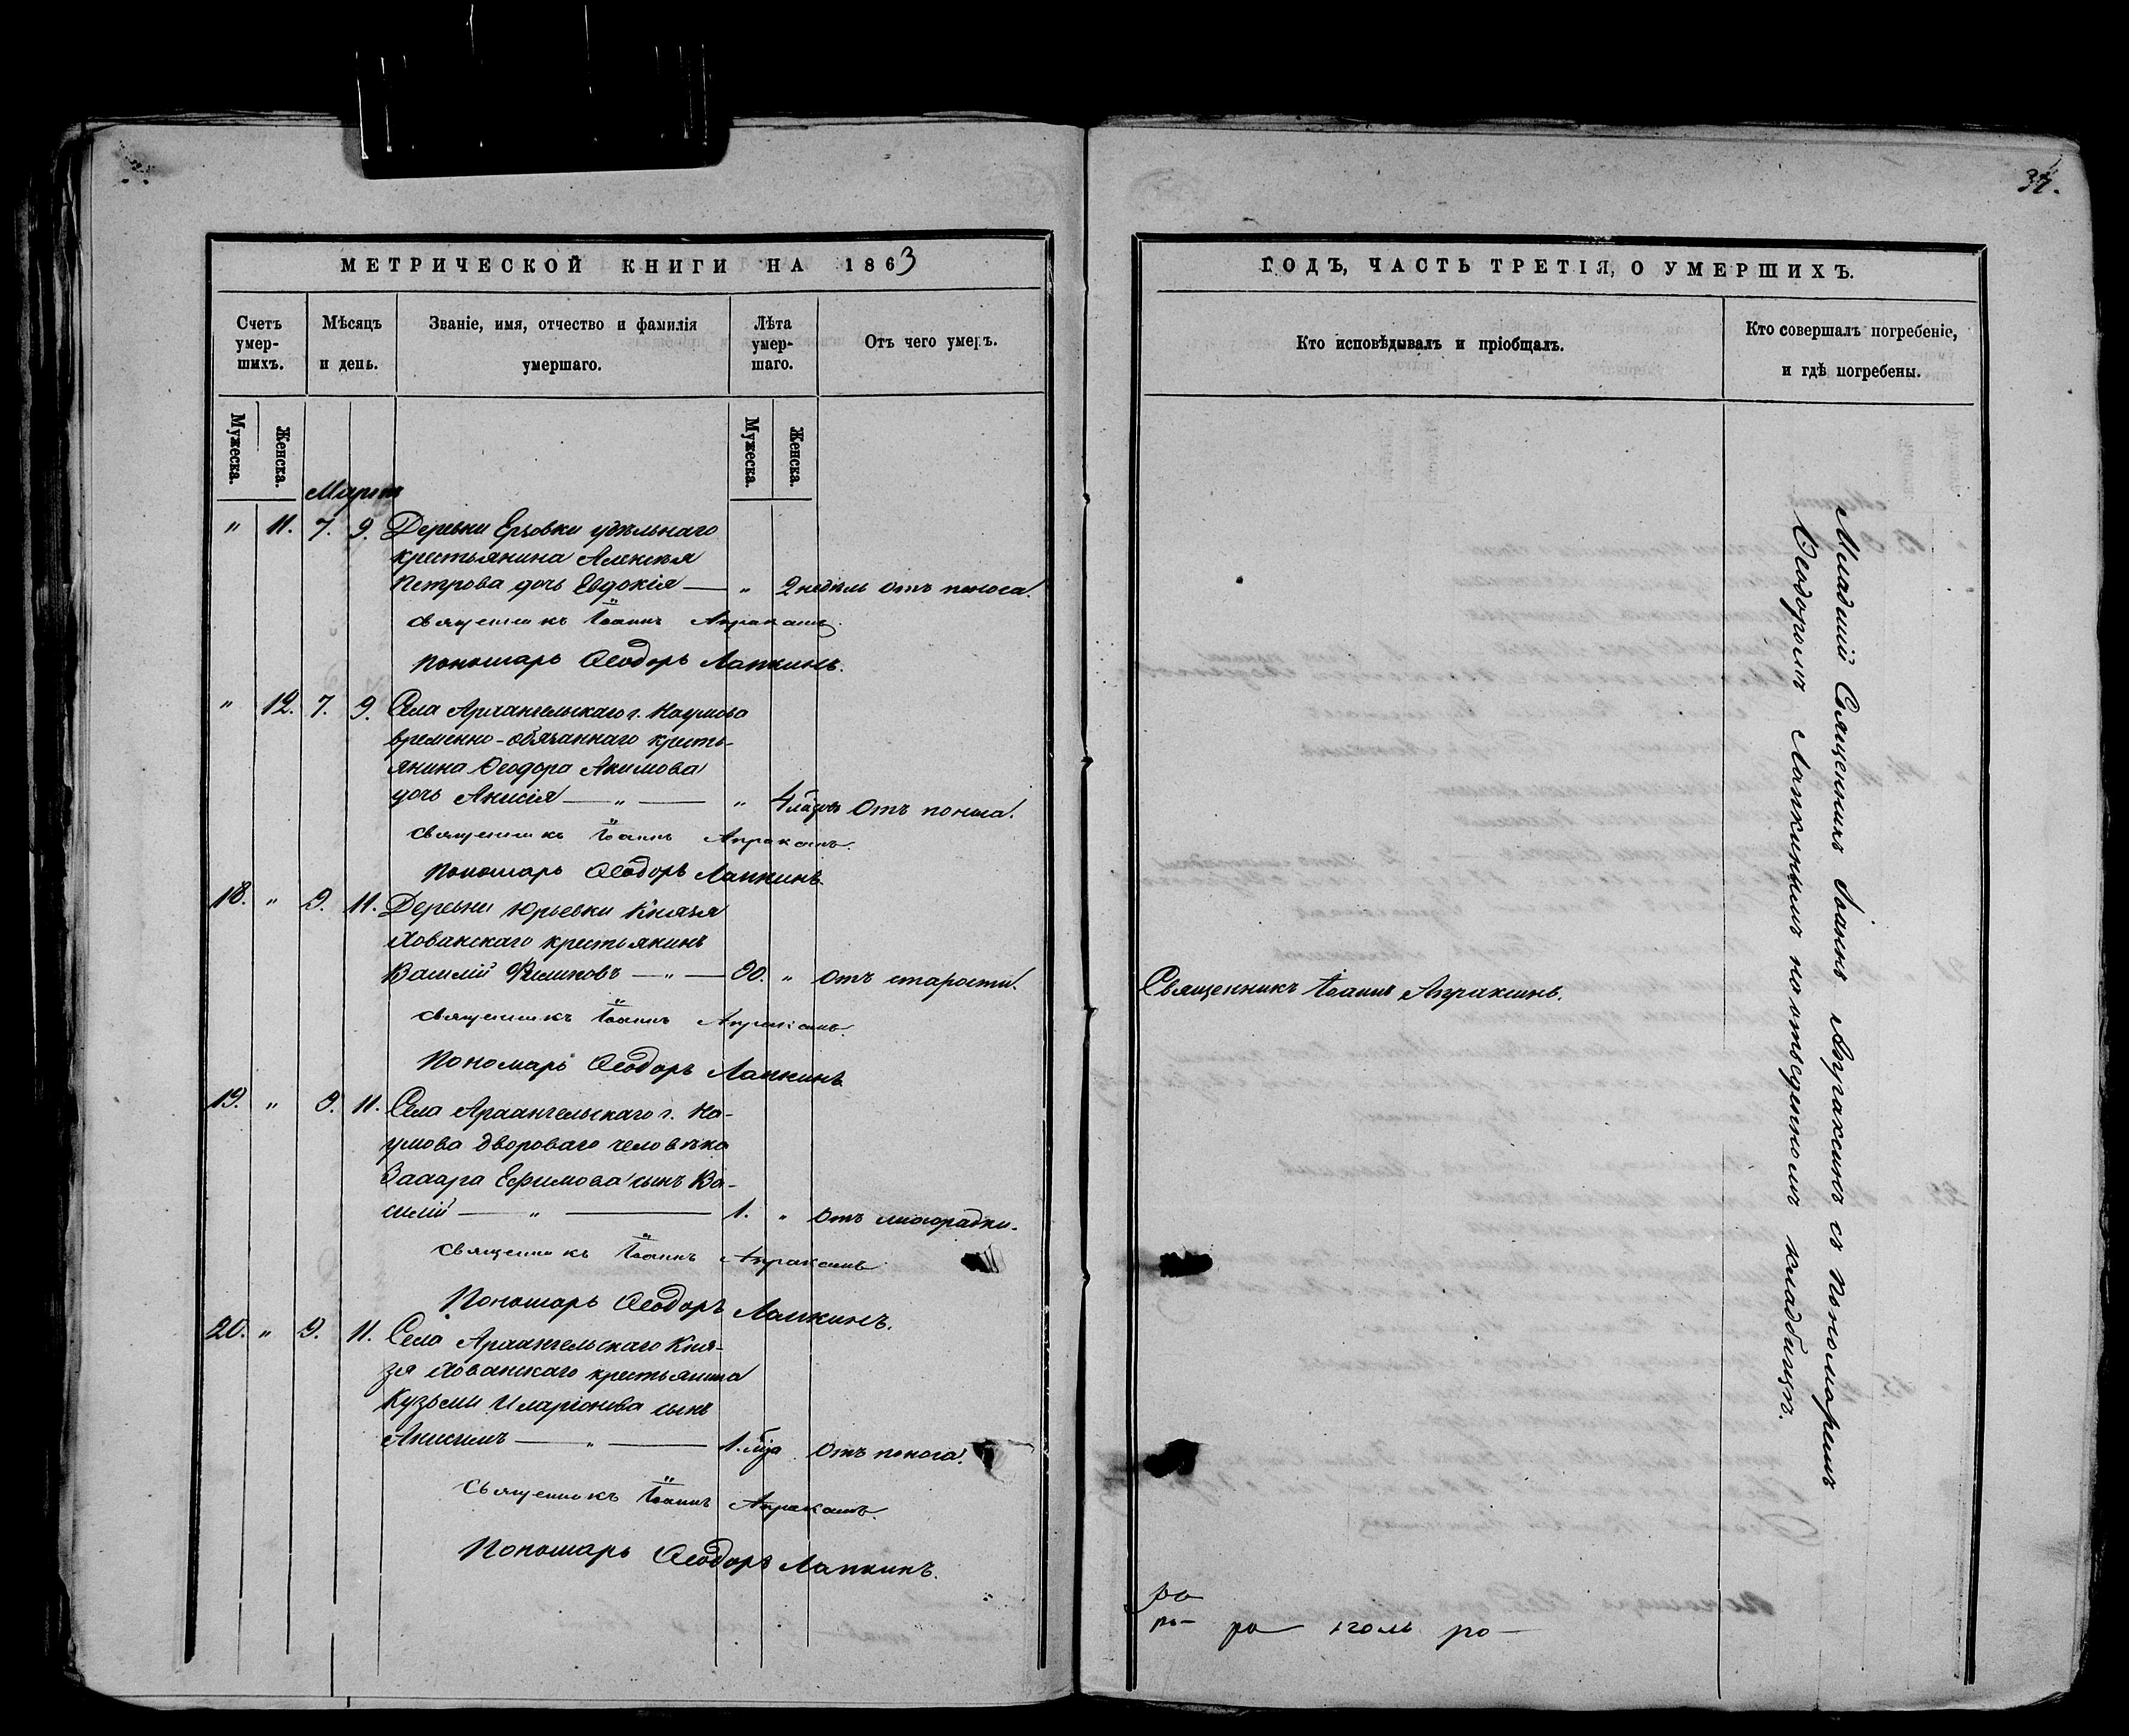 37.
МЕТРИЧЕСКОЙ КНИГИ НА 1863
Счетъ умер-шихъ.
Мѣсяцъ и день.
Званіе, имя, отчество и фамилія умершаго.
Лѣта умер-шаго.
Отъ чего умеръ.
Мужеска.
Женска.
Мужеска.
Женска.
Мартъ
" 11. 7. 9. Деревни Ерзовки удѣльнаго
крестьянина Алексѣя
Петрова дочь Евдокія — " 2 недѣль Отъ поноса.
Священникъ Іоаннъ Апраксинъ.
Пономарь Ѳеодоръ Лапкинъ.
" 12. 7. 9. Села Архангельскаго г. Наумова
временно-обязаннаго кресть-
янина Ѳеодора Акимова
дочь Анисія — " — " 4 Отъ поноса.
Священникъ Іоаннъ Апраксинъ.
Пономарь Ѳеодоръ Лапкинъ.
18. " 9. 11. Деревни Юрьевки Князя
Хованскаго крестьянинъ
Василій Филиповъ — " — 90. " Отъ старости.
Священникъ Іоаннъ Апраксинъ.
Пономарь Ѳеодоръ Лапкинъ.
19. " 9. 11. Села Архангельскаго г. На-
умова двороваго человѣка
Захара Ефимова сынъ Ва-
силій — " — 1. " Отъ лихорадки.
Священникъ Іоаннъ Апраксинъ
Пономарь Ѳеодоръ Лапкинъ.
20. " 9. 11. Села Архангельскаго Кня-
зя Хованскаго крестьянина
Кузьмы Иларіонова сынъ
Анисимъ — " — 1. Отъ поноса.
Священникъ Іоаннъ Апраксинъ.
Пономарь Ѳеодоръ Лапкинъ.
ГОДЪ, ЧАСТЬ ТРЕТІЯ, О УМЕРШИХЪ.
Кто исповѣдывалъ и пріобщалъ.
Кто совершалъ погребеніе,
и гдѣ погребены.
Священникъ Іоаннъ Апраксинъ.
Младшій Священникъ Іоаннъ Апраксинъ съ Пономаремъ
Ѳеодоромъ Лапкинымъ на отведенномъ кладбищѣ.
ра
ра